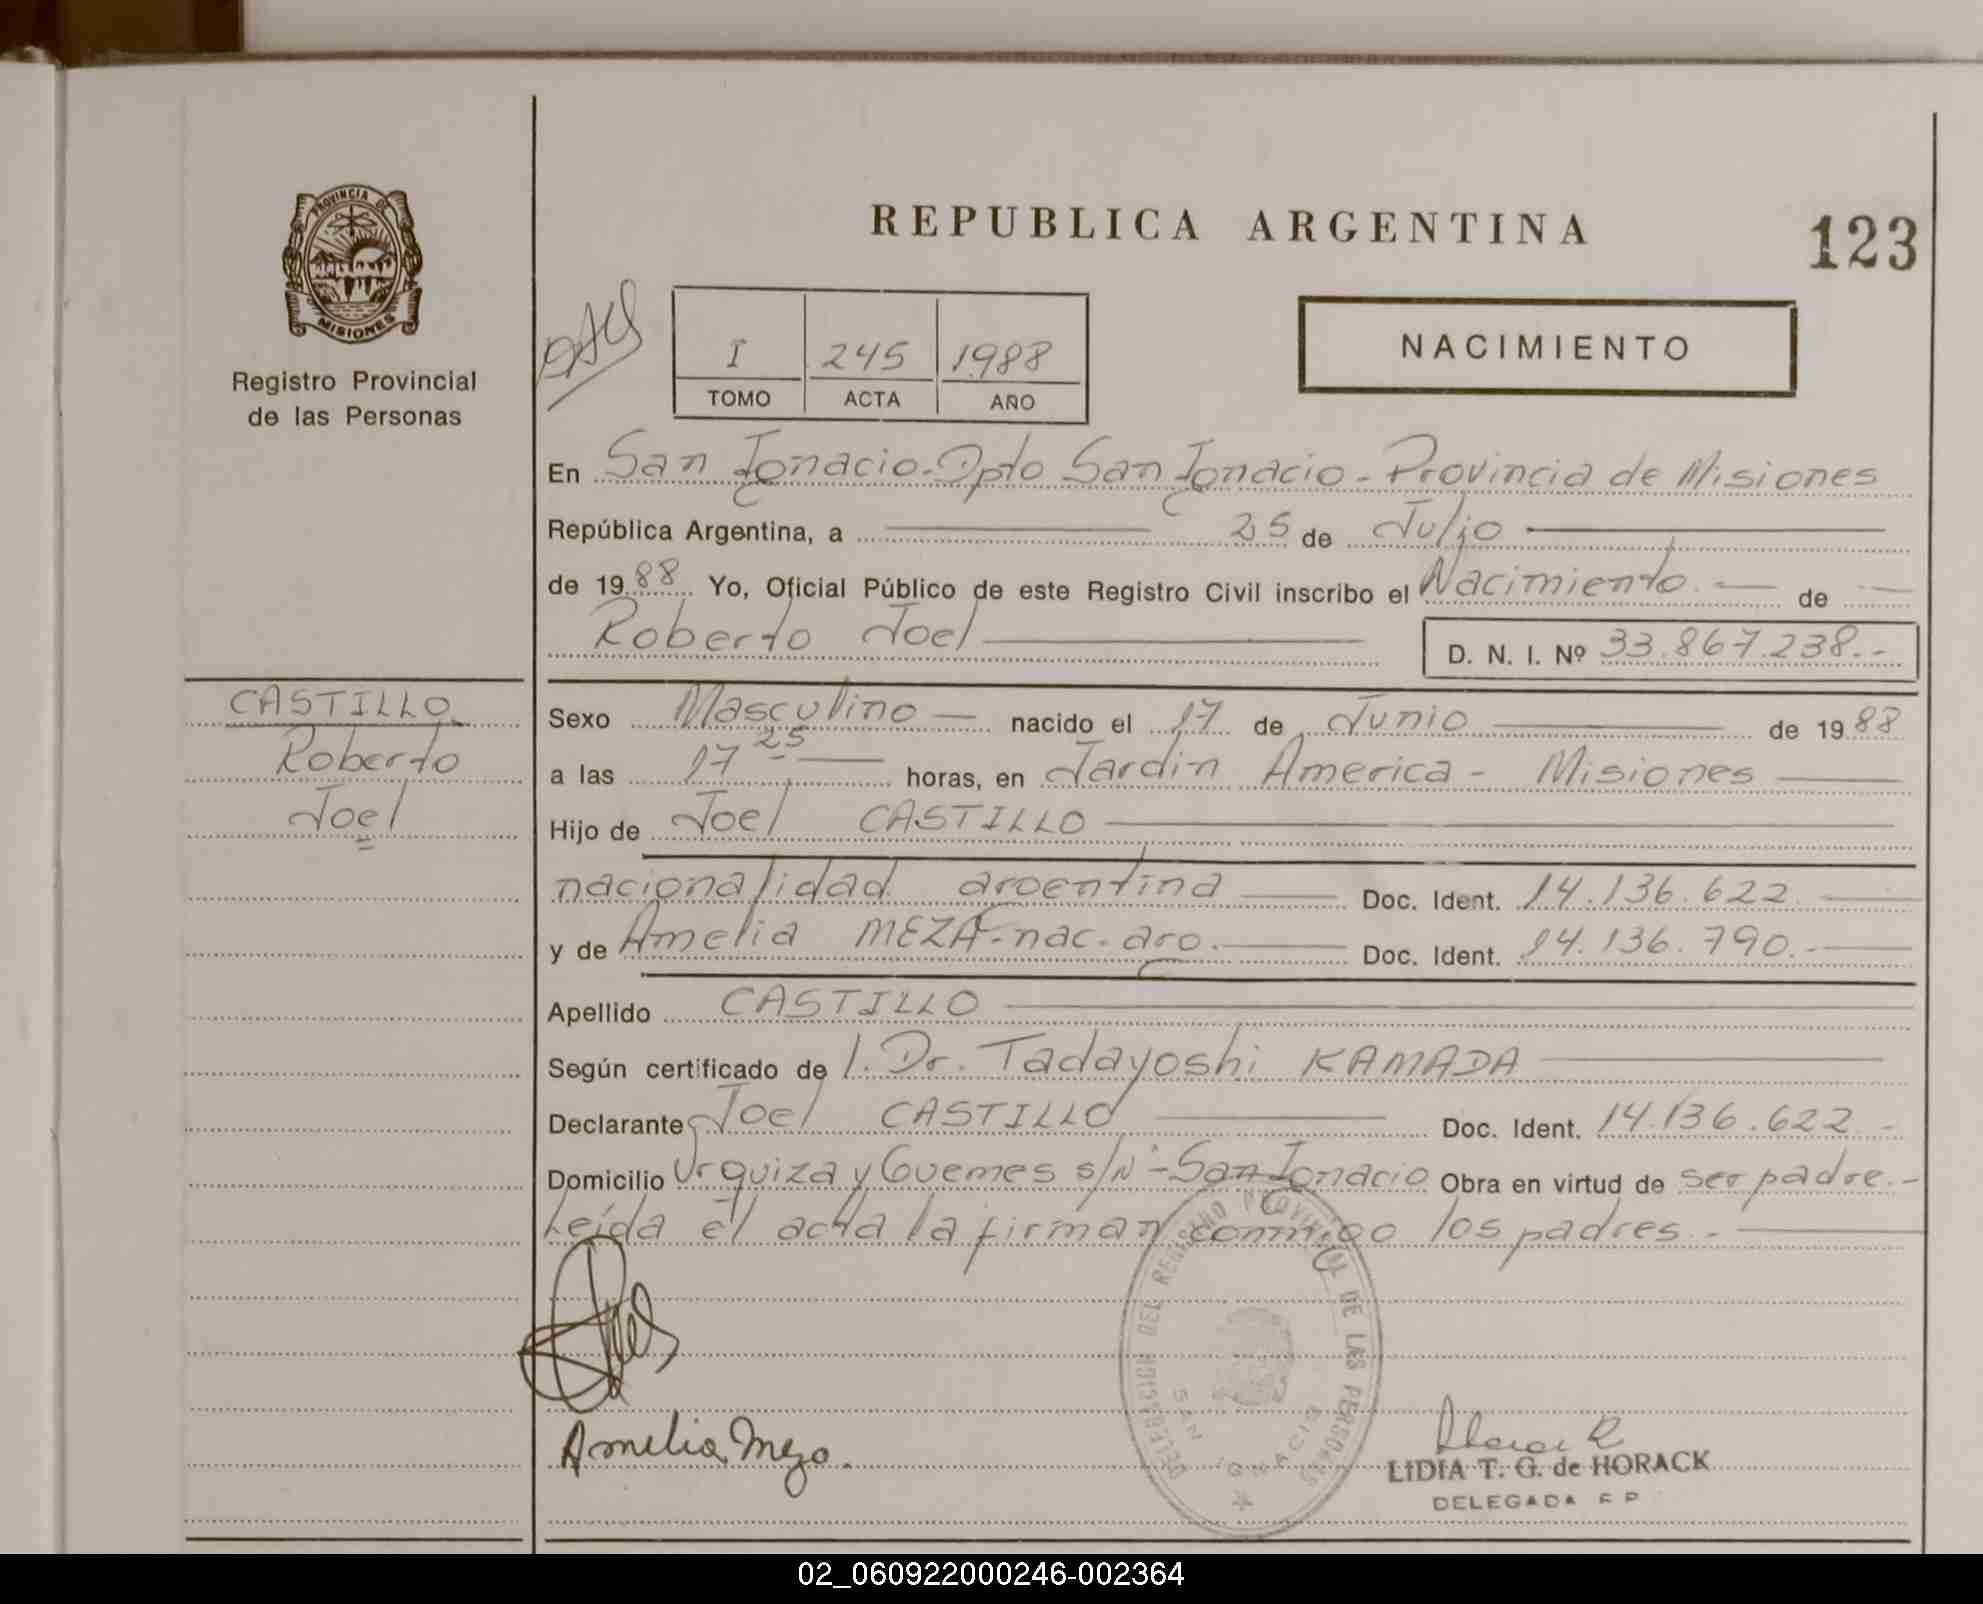 PROVINCIA DE
MISIONES
Registro Provincial
de las Personas
REPUBLICA ARGENTINA
123
I 245 1988
TOMO ACTA AÑO
NACIMIENTO
En San Ignacio - Dpto San Ignacio - Provincia de Misiones
República Argentina, a 25 de Julio
de 1988 Yo, Oficial Público de este Registro Civil inscribo el Nacimiento. de
Roberto Joel D. N. I. Nº 33.867.238.-
CASTILLO
Roberto
Joel
Sexo Masculino nacido el 17 de Junio de 1988
a las 17 25 horas, en Jardin America - Misiones
Hijo de Joel CASTILLO
nacionalidad argentina Doc. Ident. 14.136.622
y de Amelia MEZA - nac. arg. Doc. Ident. 14.136.790.-
Apellido CASTILLO
Según certificado de l. Dr. Tadayoshi KAMADA
Declarante Joel CASTILLO Doc. Ident. 14.136.622.-
Domicilio Urquiza y Guemes s/Nº - San Ignacio Obra en virtud de ser padre.-
Leída el acta la firman conmigo los padres.-
DELEGACION DEL REGISTRO PROVINCIAL DE LAS PERSONAS
SAN IGNACIO
Amelia Meza.
LIDIA T. G. de HORACK
DELEGADA R P
02_060922000246-002364